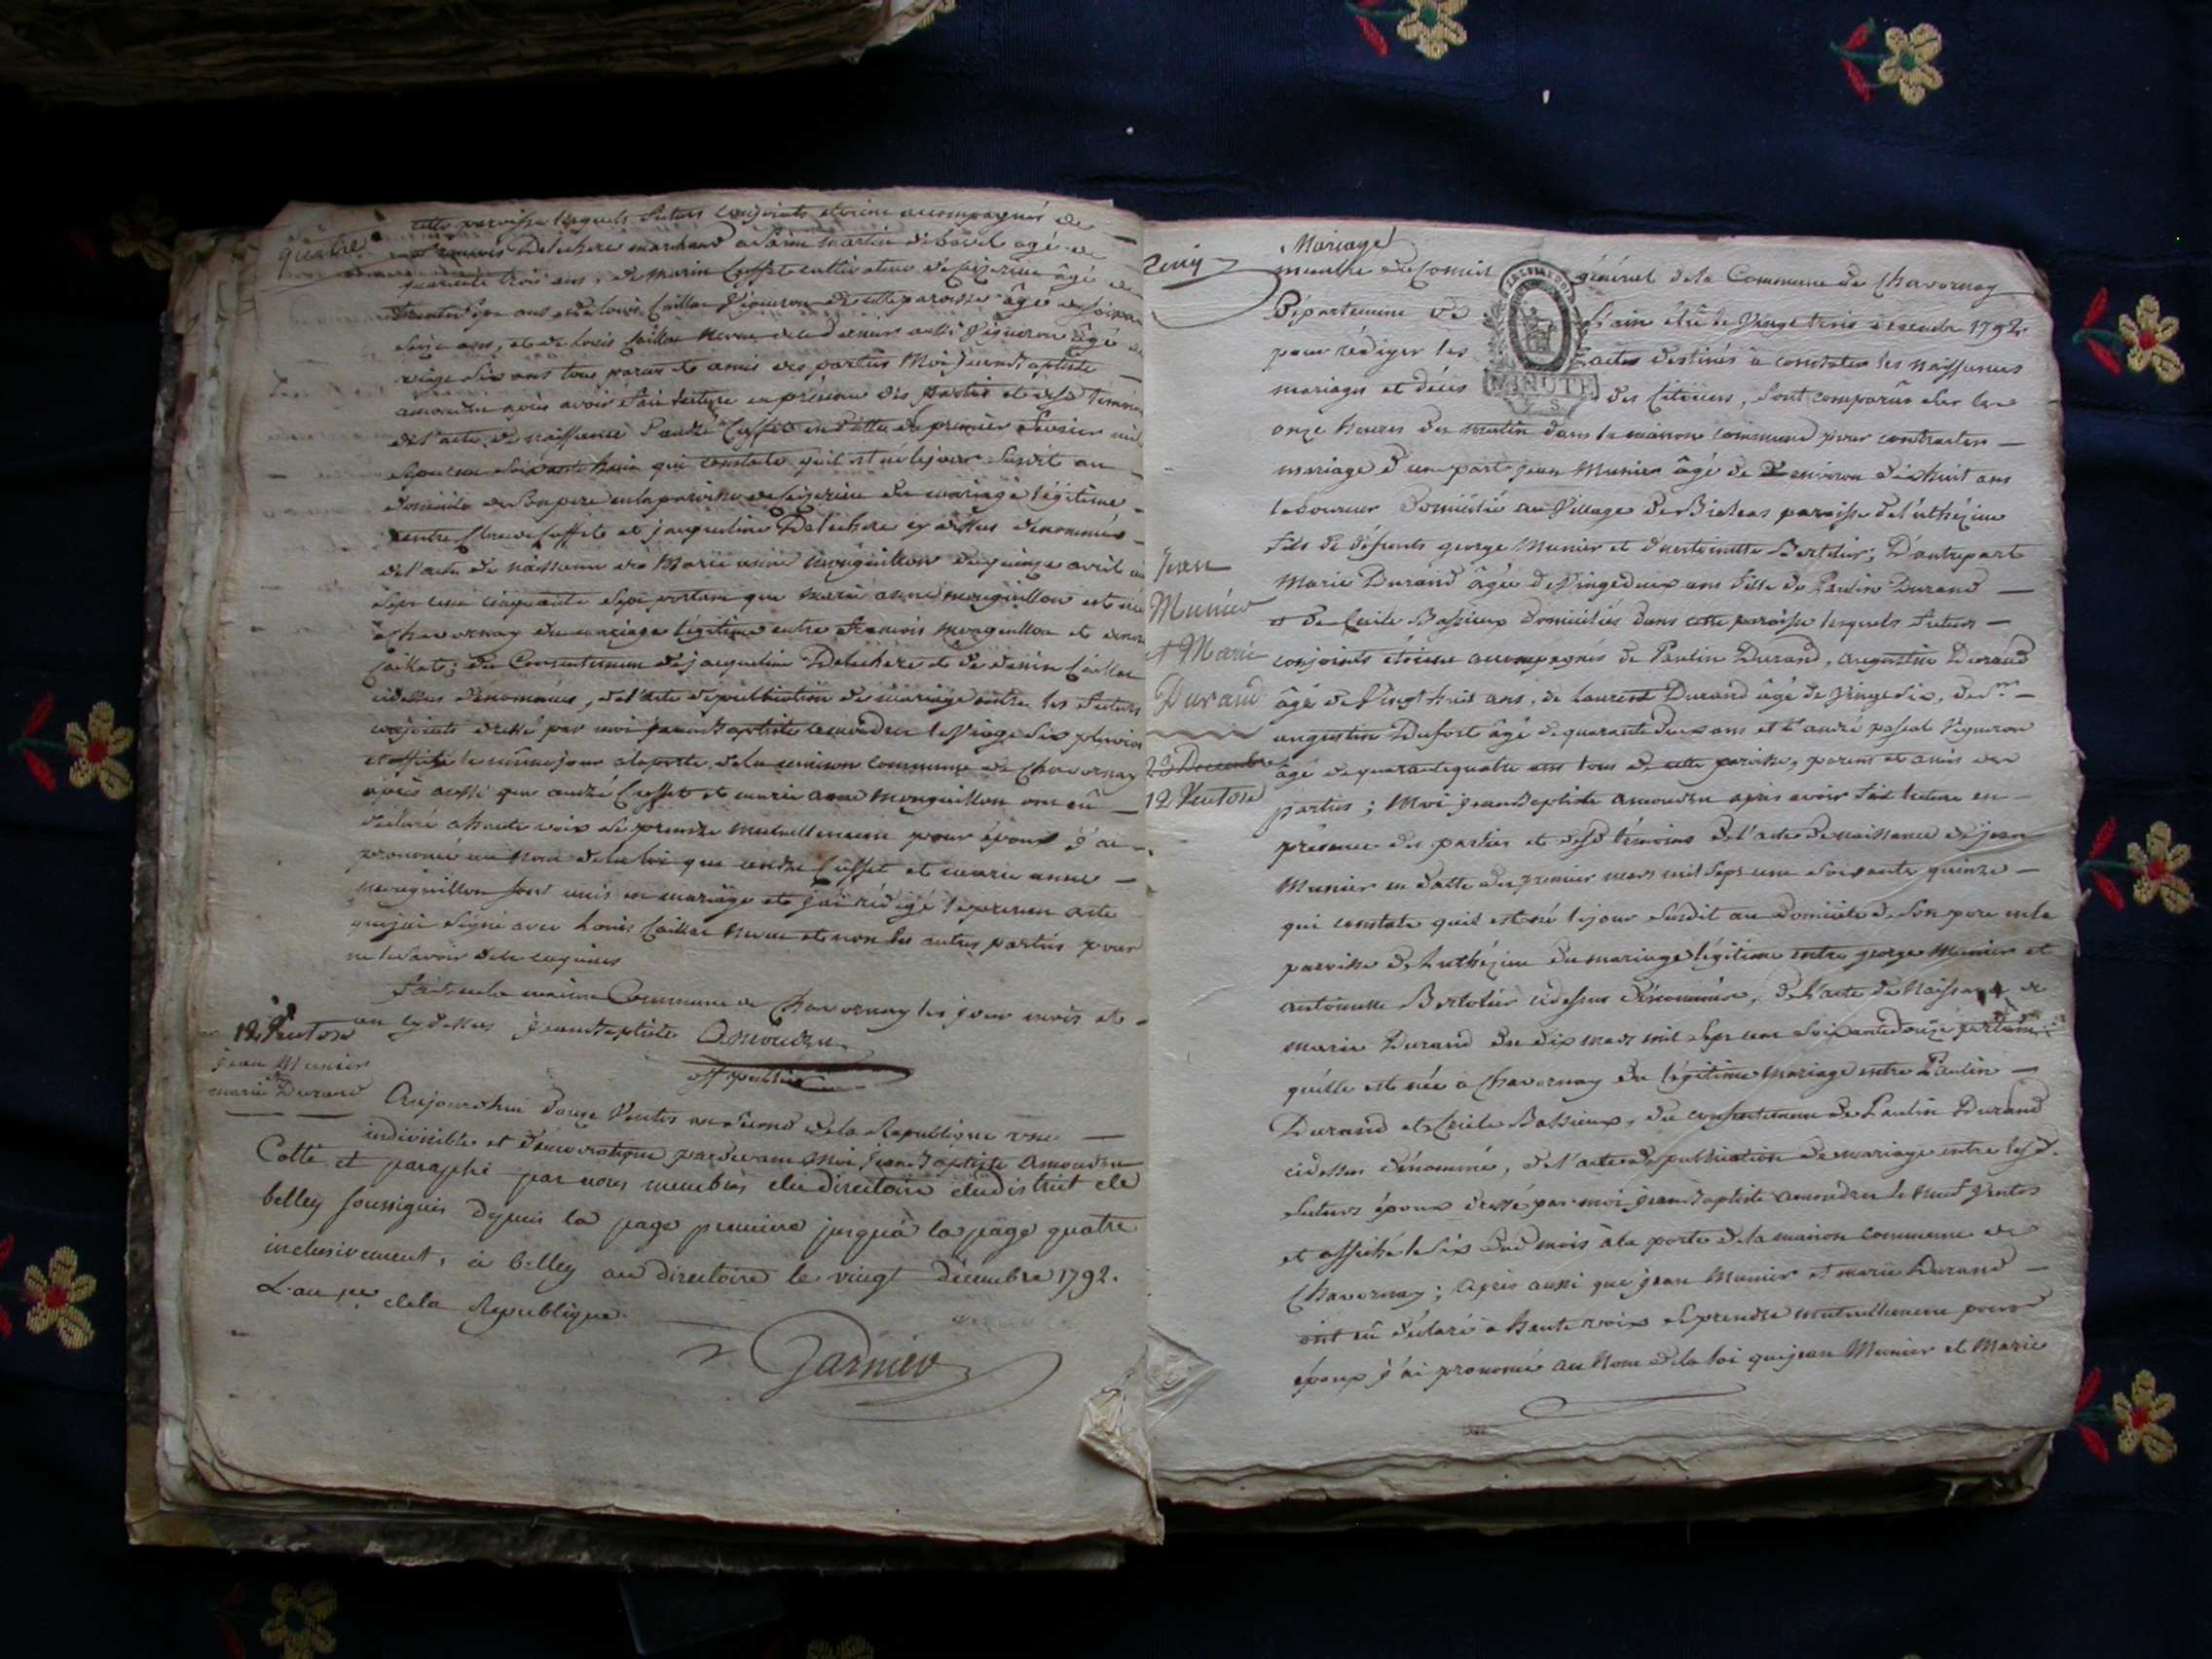 quatre
cette paroisse lesquels futurs conjoints étoient accompagnés de
françois Delechere marchand à Saint martin de bavel agé de
quarante trois ans, de marin Cusset cultivateur de agé de
trente sept ans et de Louis Caillat Vigneron de cette paroisse âgé de
seize ans, et de Louis Caillat neveu de ce dernier aussi Vigneron âgé de
vingt six ans tous parens et amis des parties Moi Jean Baptiste
amoudru après avoir fait lecture en présence des parties et desd temoins
de l'acte de naissance d'andré Cusset en datte du premier fevrier mil
sept cent soixante huit qui constate qu'il est né le jour susdit au
domicile de son pere en la paroisse de du mariage légitime
entre Cusset et jacqueline Delechere cy dessus dénommés
de l'acte de naissance de Marie anne monguillon du quinze avril mil
sept cent cinquante sept portant que marie anne monguillon est née
à Chavornay du mariage légitime entre françois monguillon et
Caillat; du Consentement de jacqueline Delechere et de Caillat
cidessus dénommées, de l'acte de publication de mariage entre les futurs
conjoints dressé par moi jean Baptiste amoudru le Vingt six pluviose
et affiché le même jour à la porte de la maison commune de Chavornay
après aussi que andré Cusset et marie anne monguillon ont eû
déclaré a haute voix se prendre mutuellement pour époux j'ai
prononcé au nom de la loi que andre Cusset et marie anne
monguillon sont unis en mariage et j'ai rédigé le present acte
que j'ai signé avec Louis Caillat neveu et non les autres parties pour
ne le savoir de ce enquises
fait en la maison Commune de Chavornay les jour mois et
an cy dessus jean Baptiste Amoudru
off public
12 Ventose
jean Munier
marie Durand
Aujourdhui douze Ventos an second de la Republique une
indivisible et démocratique pardevant Moi Jean Baptiste Amoudru
Cotté et paraphé par nous membres du directoire du district de
belley soussignés depuis la page premiere jusqu'à la page quatre
inclusivement, à belley au directoire le vingt décembre 1792.
L'an 1er de la Republique.
Garnier
Cinq
Mariage
membre du Conseil général de la Commune de Chavornay
Département de L'ain élû le Vingt trois décembre 1792
pour rédiger les actes destinés à constater les naissances
mariages et décès des Citoiens, sont comparûs sur les
MINUTE
onze heures du matin dans la maison commune pour contracter
mariage d'une part jean Munier âgé de environ dixhuit ans
laboureur domicilié au Village de paroisse de Luthézieu
fils de défunts george Munier et d'antoinette Bertelier; D'autre part
Jean
Munier
et Marie
Durand
23 Decembre
12 Ventose
Marie Durand âgée de Vingt deux ans fille de Paulin Durand
et de Cecile Bassieux domiciliés dans cette paroisse lesquels futurs
conjoints étoient accompagnés de Paulin Durand, augustin Durand
âgé de Vingt huit ans, de laurent Durand âgé de Vingt six, de
augustin Dufort âgé de quarante deux ans et d'andré pascal Vigneron
âgé de quarante quatre ans tous de cette paroisse, parens et amis des
parties; Moi jean Baptiste amoudru après avoir fait lecture en
présence des parties et desd témoins de l'acte de naissance de jean
Munier en datte du premier mars mil sept cent soixante quinze
qui constate qu'il est né le jour susdit au domicile de son pere en la
paroisse de Luthézieu du mariage légitime entre george Munier et
antoinette Bertelier cidessus dénommés, de l'acte de Naissance de
marie Durand du dix mars mil sept cent soixante douze portant
qu'elle est née à Chavornay du légitime mariage entre Paulin
Durand et Cecile Bassieux, du consentement de Paulin Durand
cidessus dénommé, de l'acte de publication de mariage entre lesd.
futurs époux dressé par moi jean Baptiste amoudru le neuf Ventos
et affiché le dix dud mois à la porte de la maison commune de
Chavornay; Après aussi que jean Munier et marie Durand
ont eû déclaré à haute voix se prendre mutuellement pour
époux j'ai prononcé au Nom de la loi que jean Munier et Marie